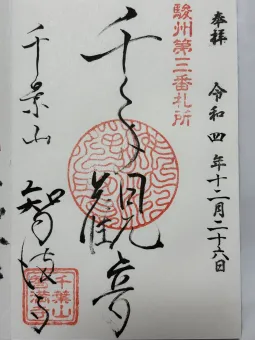 奉拝 令和四年十二月二十六日
駿州第三番札所
千手觀音
千葉山 智満寺
千葉山